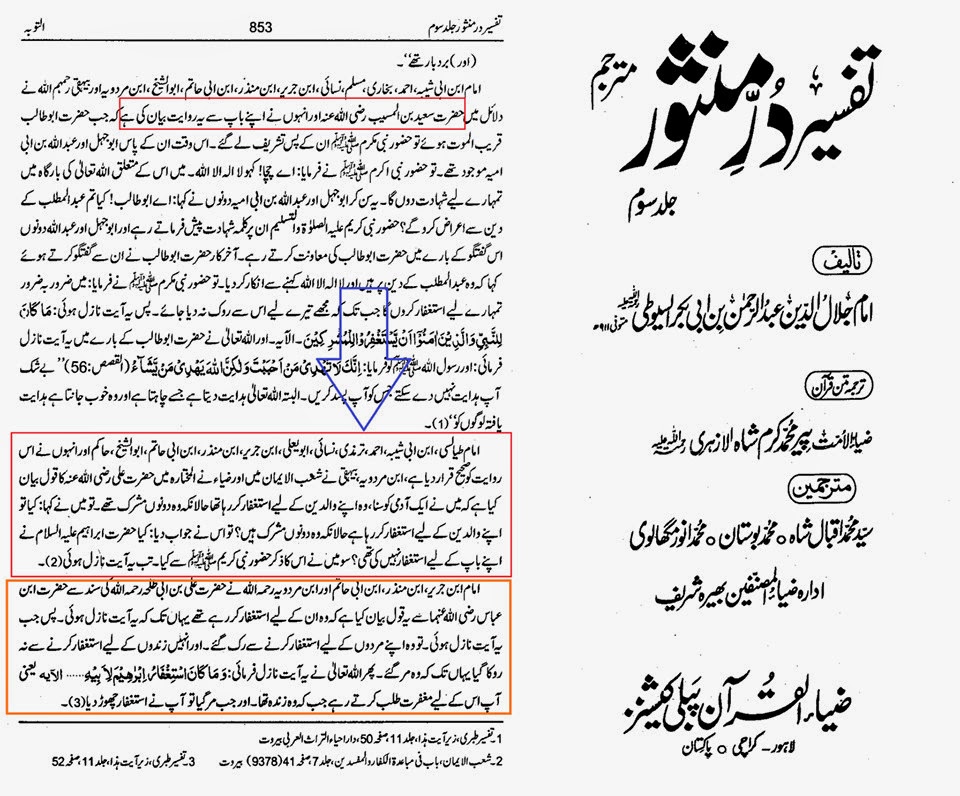 تفسیر در منثور جلد سوم 853 التوبہ
(اور) بردبار تھے“۔
امام ابن ابی شیبہ، احمد، بخاری، مسلم، نسائی، ابن جریر، ابن منذر، ابن ابی حاتم، ابوالشیخ، ابن مردویہ اور بیہقی رحمہم اللہ نے
دلائل میں حضرت سعید بن المسیب رضی اللہ عنہ اور انہوں نے اپنے باپ سے یہ روایت بیان کی ہے کہ جب حضرت ابوطالب
قریب الموت ہوئے تو حضور نبی مکرم ﷺ ان کے پس تشریف لے گئے۔ اس وقت ان کے پاس ابوجہل اور عبداللہ بن ابی
امیہ موجود تھے۔ تو حضور نبی اکرم ﷺ نے فرمایا: اے چچا! کہو لا الہ الا اللہ۔ میں اس کے متعلق اللہ تعالیٰ کی بارگاہ میں
تمہارے لیے شہادت دوں گا۔ یہ سن کر ابوجہل اور عبداللہ بن ابی امیہ دونوں نے کہا: اے ابوطالب! کیا تم عبدالمطلب کے
دین سے اعراض کرو گے؟ حضور نبی کریم علیہ الصلوٰۃ والتسلیم ان پر کلمہ شہادت پیش فرماتے رہے اور ابوجہل اور عبداللہ دونوں
اس گفتگو کے بارے میں حضرت ابوطالب کی معاونت کرتے رہے۔ آخر کار حضرت ابوطالب نے ان سے گفتگو کرتے ہوئے
کہا کہ وہ عبدالمطلب کے دین پر ہیں اور لا الہ الا اللہ کہنے سے انکار کر دیا۔ تو حضور نبی مکرم ﷺ نے فرمایا: میں ضرور بہ ضرور
تمہارے لیے استغفار کروں گا جب تک کہ مجھے تیرے لیے اس سے روک نہ دیا جائے۔ پس یہ آیت نازل ہوئی: مَا كَانَ
لِلنَّبِيِّ وَالَّذِيْنَ اٰمَنُوْٓا اَنْ يَّسْتَغْفِرُوْا لِلْمُشْرِكِيْنَ۔ الآیہ۔ اور اللہ تعالیٰ نے حضرت ابوطالب کے بارے میں یہ آیت نازل
فرمائی: اور رسول اللہ ﷺ کو فرمایا: اِنَّكَ لَا تَهْدِيْ مَنْ اَحْبَبْتَ وَلٰكِنَّ اللّٰهَ يَهْدِيْ مَنْ يَّشَآءُ (القصص:56) ”بے شک
آپ ہدایت نہیں دے سکتے جس کو آپ پسند کریں۔ البتہ اللہ تعالیٰ ہدایت دیتا ہے جسے چاہتا ہے اور وہ خوب جانتا ہے ہدایت
یافتہ لوگوں کو“ (1)۔
امام طیالسی، ابن ابی شیبہ، احمد، ترمذی، نسائی، ابو یعلی، ابن جریر، ابن منذر، ابن ابی حاتم، ابوالشیخ، حاکم اور انہوں نے اس
روایت کو صحیح قرار دیا ہے، ابن مردویہ، بیہقی نے شعب الایمان میں اور ضیاء نے المختارہ میں حضرت علی رضی اللہ عنہ کا قول بیان
کیا ہے کہ میں نے ایک آدمی کو سنا، وہ اپنے والدین کے لیے استغفار کر رہا تھا حالانکہ وہ دونوں مشرک تھے۔ تو میں نے کہا: کیا تو
اپنے والدین کے لیے استغفار کر رہا ہے حالانکہ وہ دونوں مشرک ہیں؟ تو اس نے جواب دیا: کیا حضرت ابراہیم علیہ السلام نے
اپنے باپ کے لیے استغفار نہیں کی تھی؟ سو میں نے اس کا ذکر حضور نبی کریم ﷺ سے کیا۔ تب یہ آیت نازل ہوئی (2)۔
امام ابن جریر، ابن منذر، ابن ابی حاتم اور ابن مردویہ رحمہ اللہ نے حضرت علی بن ابی طلحہ رحمہ اللہ کی سند سے حضرت ابن
عباس رضی اللہ عنہما سے یہ قول بیان کیا ہے کہ وہ ان کے لیے استغفار کر رہے تھے یہاں تک کہ یہ آیت نازل ہوئی۔ پس جب
یہ آیت نازل ہوئی۔ تو وہ اپنے مردوں کے لیے استغفار کرنے سے رک گئے۔ اور انہیں زندوں کے لیے استغفار کرنے سے نہ
روکا گیا یہاں تک کہ وہ مر گئے۔ پھر اللہ تعالیٰ نے یہ آیت نازل فرمائی: وَمَا كَانَ اسْتِغْفَارُ اِبْرٰهِيْمَ لِاَبِيْهِ ...... الآیہ یعنی
آپ اس کے لیے مغفرت طلب کرتے رہے جب کہ وہ زندہ تھا۔ اور جب مر گیا تو آپ نے استغفار چھوڑ دیا (3)۔
1۔ تفسیر طبری، زیر آیت ہذا، جلد 11، صفحہ 50، دار احیاء التراث العربی بیروت
2۔ شعب الایمان، باب فی مباعدۃ الکفار والمفسدین، جلد 7، صفحہ 41 (9378) بیروت 3۔ تفسیر طبری، زیر آیت ہذا، جلد 11، صفحہ 52
تفسیر دُرِّ منثور مترجم
جلد سوم
تالیف
امام جلال الدین عبدالرحمٰن بن ابی بکر السیوطی رحمۃ اللہ علیہ متوفی ۹۱۱ھ
ترجمہ متن قرآن
ضیاء الامت پیر محمد کرم شاہ الازہری رحمۃ اللہ علیہ
مترجمین
سید محمد اقبال شاہ ○ محمد بوستان ○ محمد انور مگھالوی
ادارہ ضیاء المصنفین بھیرہ شریف
ضیاء القرآن پبلی کیشنز
لاہور - کراچی ○ پاکستان